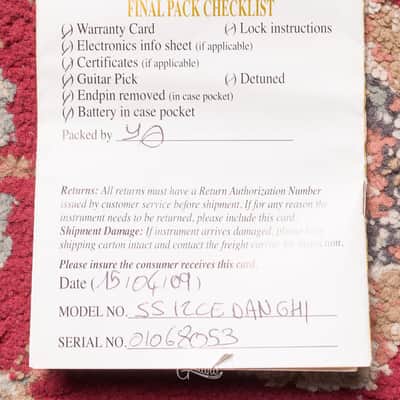 FINAL PACK CHECKLIST
Warranty Card Lock instructions
Electronics info sheet (if applicable)
Certificates (if applicable)
Guitar Pick Detuned
Endpin removed (in case pocket)
Battery in case pocket
Packed by
Returns: All returns must have a Return Authorization Number
issued by customer service before shipment. If for any reason the
instrument needs to be returned, please include this card.
Shipment Damage: If instrument arrives damaged, please keep
shipping carton intact and contact the freight carrier for instruction.
Please insure the consumer receives this card.
Date (15/04/09)
MODEL NO. SS12CE DANGHI
SERIAL NO. 01068053